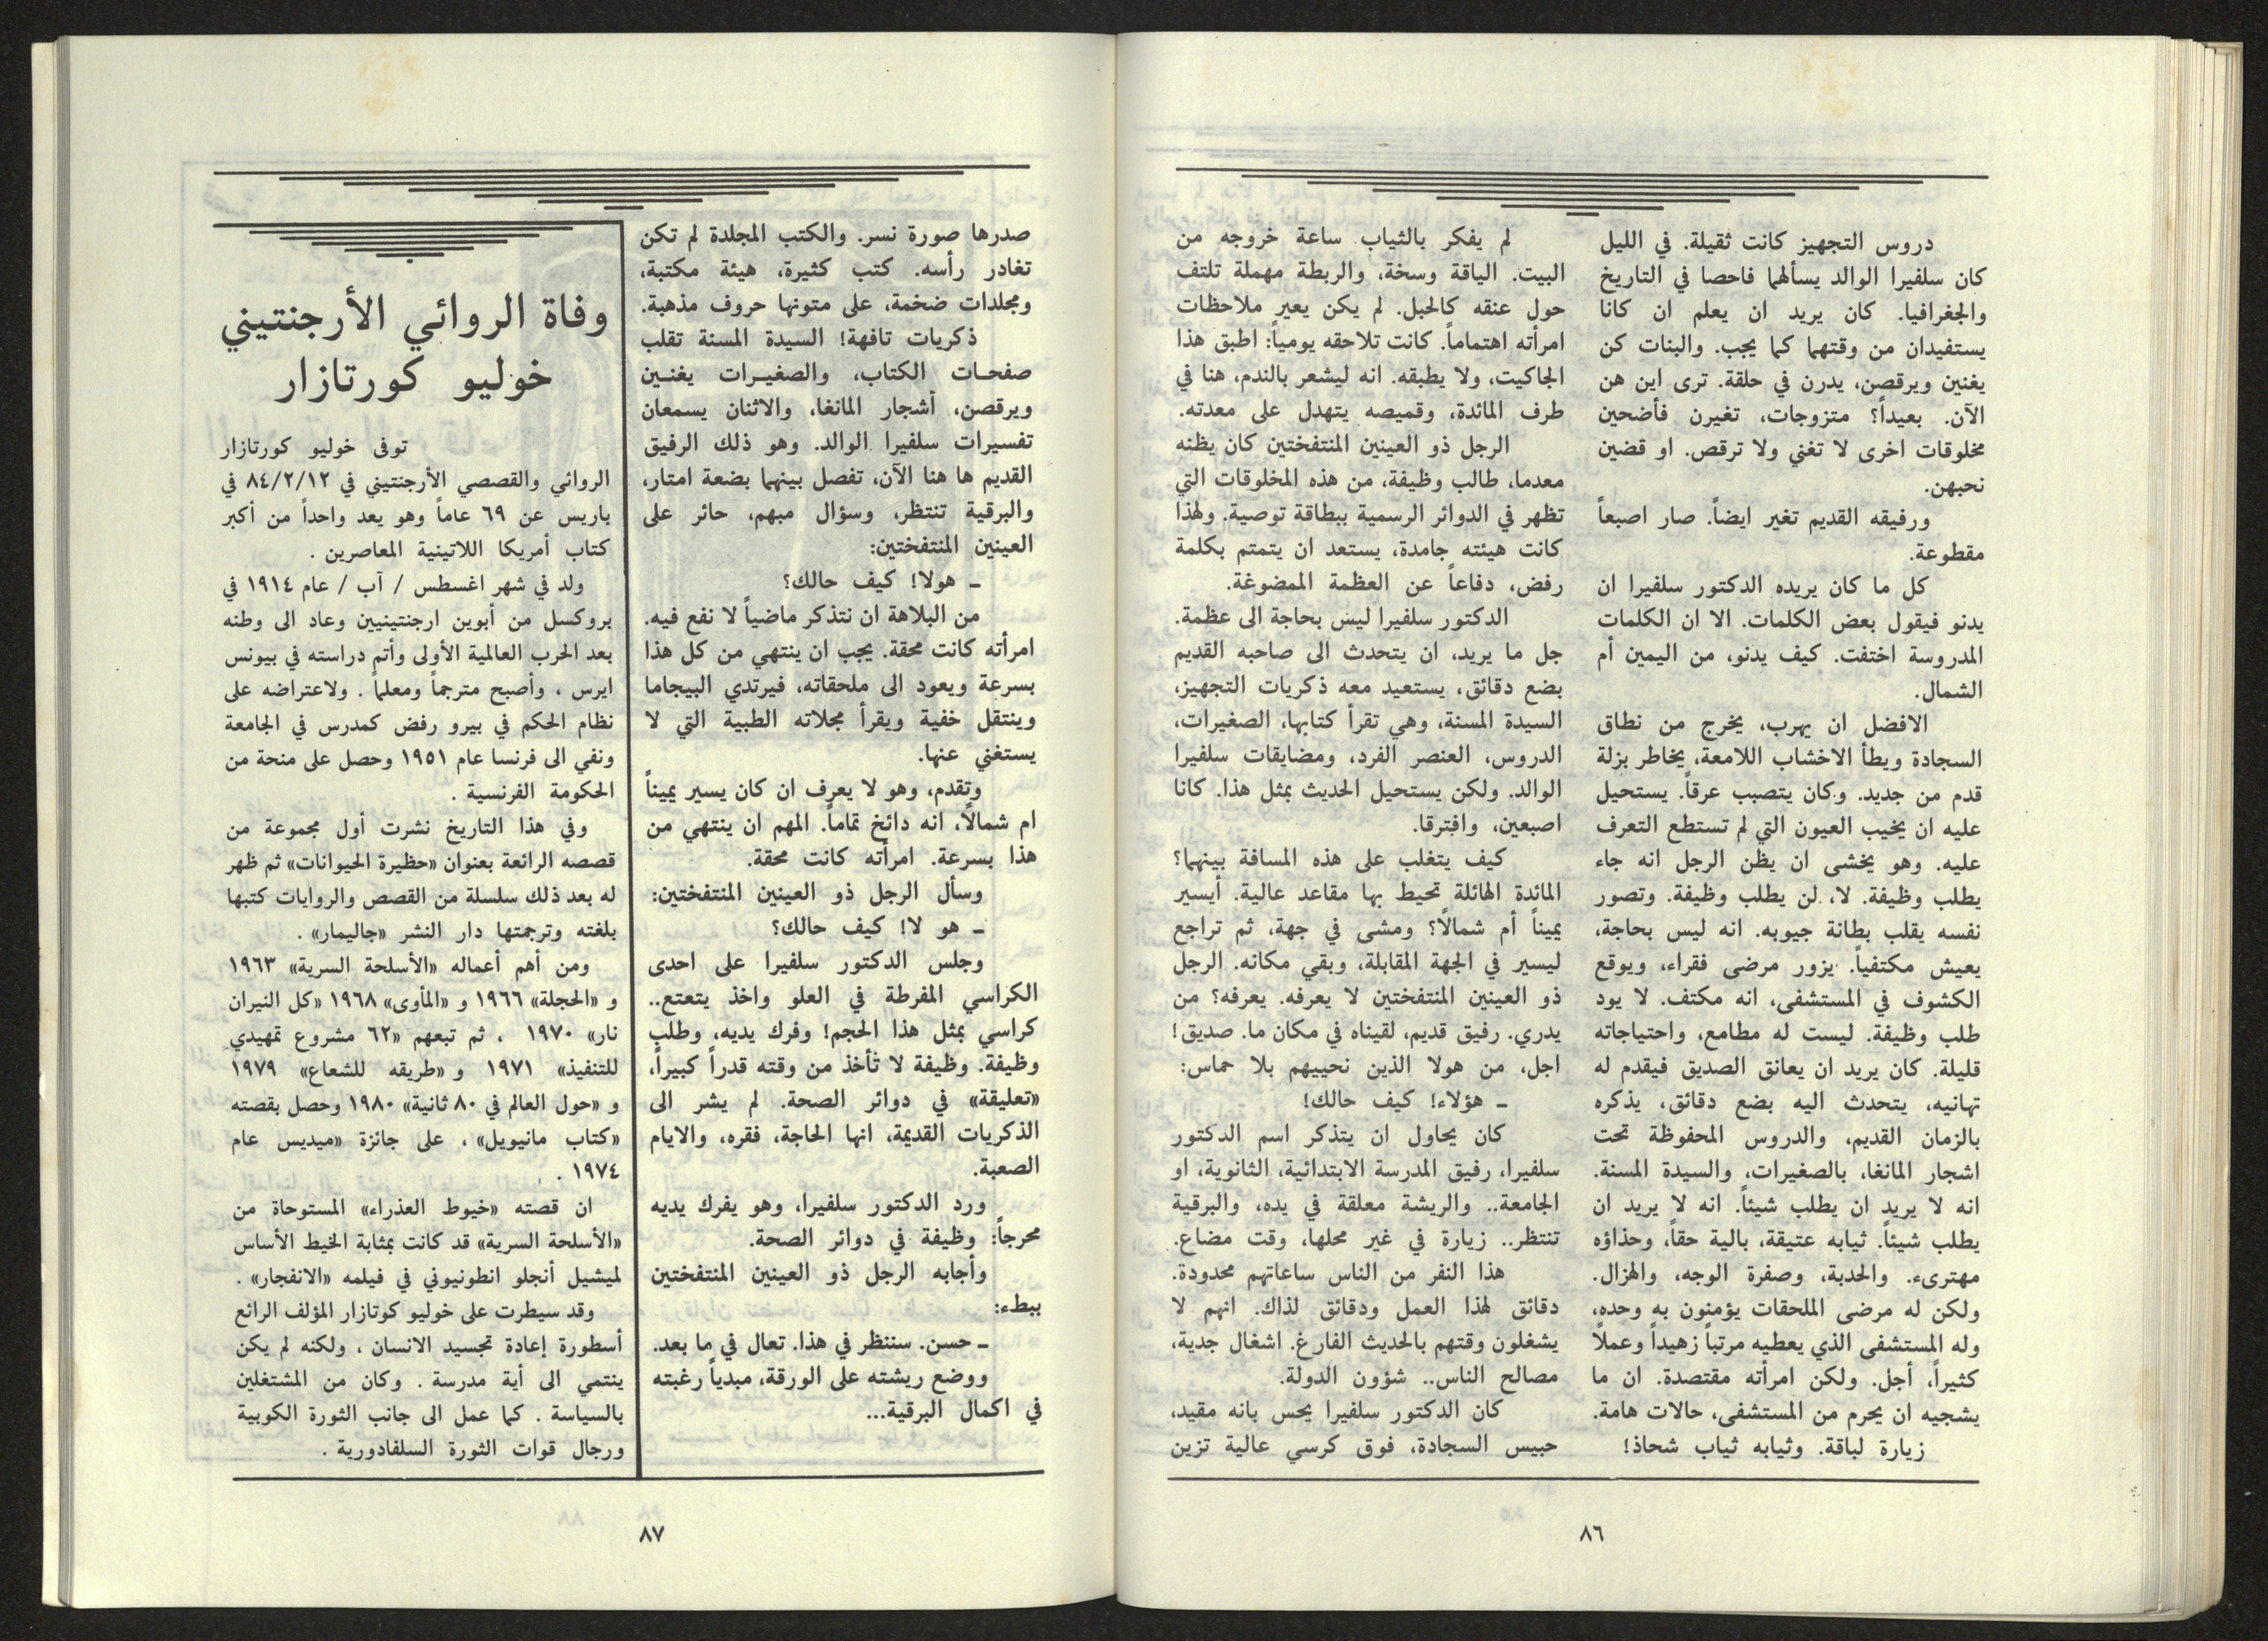 دروس التجهيز كانت ثقيلة. في الليل
كان سلفيرا الوالد يسألهما فاحصا في التاريخ
والجغرافيا. كان يريد ان يعلم ان كانا
يستفيدان من وقتهما كما يجب. والبنات كن
يغنين ويرقصن، يدرن في حلقة. ترى اين هن
الآن. بعيداً؟ متزوجات، تغيرن فأضحين
مخلوقات اخرى لا تغني ولا ترقص. او قضين
نحبهن.
ورفيقه القديم تغير ايضاً. صار اصبعاً
مقطوعة.
كل ما كان يريده الدكتور سلفيرا ان
يدنو فيقول بعض الكلمات. الا ان الكلمات
المدروسة اختفت. كيف يدنو، من اليمين أم
الشمال.
الافضل ان يهرب، يخرج من نطاق
السجادة ويطأ الاخشاب اللامعة، يخاطر بزلة
قدم من جديد. وكان يتصبب عرقاً. يستحيل
عليه ان يخيب العيون التي لم تستطع التعرف
عليه. وهو يخشى ان يظن الرجل انه جاء
يطلب وظيفة. لا، لن يطلب وظيفة. وتصور
نفسه يقلب بطانة جيوبه. انه ليس بحاجة،
يعيش مكتفياً. يزور مرضى فقراء، ويوقع
الكشوف في المستشفى، انه مكتف. لا يود
طلب وظيفة. ليست له مطامع، واحتياجاته
قليلة. كان يريد ان يعانق الصديق فيقدم له
تهانيه، يتحدث اليه بضع دقائق، يذكره
بالزمان القديم، والدروس المحفوظة تحت
اشجار المانغا، بالصغيرات، والسيدة المسنة.
انه لا يريد ان يطلب شيئاً. انه لا يريد ان
يطلب شيئاً. ثيابه عتيقة، بالية حقاً، وحذاؤه
مهترىء. والحدبة، وصفرة الوجه، والهزال.
ولكن له مرضى الملحقات يؤمنون به وحده،
وله المستشفى الذي يعطيه مرتباً زهيداً وعملاً
كثيراً، أجل. ولكن امرأته مقتصدة. ان ما
يشجيه ان يحرم من المستشفى، حالات هامة.
زيارة لباقة. وثيابه ثياب شحاذ!
لم يفكر بالثياب ساعة خروجه من
البيت. الياقة وسخة، والربطة مهملة تلتف
حول عنقه كالحبل. لم يكن يعير ملاحظات
امرأته اهتماماً. كانت تلاحقه يومياً: اطبق هذا
الجاكيت، ولا يطبقه. انه ليشعر بالندم، هنا في
طرف المائدة، وقميصه يتهدل على معدته.
الرجل ذو العينين المنتفختين كان يظنه
معدما، طالب وظيفة، من هذه المخلوقات التي
تظهر في الدوائر الرسمية ببطاقة توصية. ولهذا
كانت هيئته جامدة، يستعد ان يتمتم بكلمة
رفض، دفاعاً عن العظمة الممضوغة.
الدكتور سلفيرا ليس بحاجة الى عظمة.
جل ما يريد، ان يتحدث الى صاحبه القديم
بضع دقائق، يستعيد معه ذكريات التجهيز،
السيدة المسنة، وهي تقرأ كتابها، الصغيرات،
الدروس، العنصر الفرد، ومضايقات سلفيرا
الوالد. ولكن يستحيل الحديث بمثل هذا. كانا
اصبعين، وافترقا.
كيف يتغلب على هذه المسافة بينهما؟
المائدة الهائلة تحيط بها مقاعد عالية. أيسير
يميناً أم شمالاً؟ ومشى في جهة، ثم تراجع
ليسير في الجهة المقابلة، وبقي مكانه. الرجل
ذو العينين المنتفختين لا يعرفه. يعرفه؟ من
يدري. رفيق قديم، لقيناه في مكان ما. صديق!
اجل، من هولا الذين نحييهم بلا حماس:
ـ هؤلاء! كيف حالك!
كان يحاول ان يتذكر اسم الدكتور
سلفيرا، رفيق المدرسة الابتدائية، الثانوية، او
الجامعة.. والريشة معلقة في يده، والبرقية
تنتظر.. زيارة في غير محلها، وقت مضاع.
هذا النفر من الناس ساعاتهم محدودة.
دقائق لهذا العمل ودقائق لذاك. انهم لا
يشغلون وقتهم بالحديث الفارغ. اشغال جدية،
مصالح الناس.. شؤون الدولة.
كان الدكتور سلفيرا يحس بانه مقيد،
حبيس السجادة، فوق كرسي عالية تزين
٨٦
صدرها صورة نسر. والكتب المجلدة لم تكن
تغادر رأسه. كتب كثيرة، هيئة مكتبة،
ومجلدات ضخمة، على متونها حروف مذهبة.
ذكريات تافهة! السيدة المسنة تقلب
صفحـات الكتاب، والصغيـرات يغنـين
ويرقصن، أشجار المانغا، والاثنان يسمعان
تفسيرات سلفيرا الوالد. وهو ذلك الرفيق
القديم ها هنا الآن، تفصل بينهما بضعة امتار،
والبرقية تنتظر، وسؤال مبهم، حائر على
العينين المنتفختين:
ـ هولا! كيف حالك؟
من البلاهة ان نتذكر ماضياً لا نفع فيه.
امرأته كانت محقة. يجب ان ينتهي من كل هذا
بسرعة ويعود الى ملحقاته، فيرتدي البيجاما
وينتقل خفية ويقرأ مجلاته الطبية التي لا
يستغني عنها.
وتقدم، وهو لا يعرف ان كان يسير يميناً
ام شمالاً، انه دائخ تماماً. المهم ان ينتهي من
هذا بسرعة. امرأته كانت محقة.
وسأل الرجل ذو العينين المنتفختين:
ـ هو لا! كيف حالك؟
وجلس الدكتور سلفيرا على احدى
الكراسي المفرطة في العلو واخذ يتعتع..
كراسي بمثل هذا الحجم! وفرك يديه، وطلب
وظيفة. وظيفة لا تأخذ من وقته قدراً كبيراً،
«تعليقة» في دوائر الصحة. لم يشر الى
الذكريات القديمة، انها الحاجة، فقره، والايام
الصعبة.
ورد الدكتور سلفيرا، وهو يفرك يديه
محرجاً: وظيفة في دوائر الصحة.
وأجابه الرجل ذو العينين المنتفختين
ببطء:
ـ حسن. سننظر في هذا. تعال في ما بعد.
ووضع ريشته على الورقة، مبدياً رغبته
في اكمال البرقية...
وفاة الروائي الأرجنتيني
خوليو كورتازار
توفى خوليو كورتازار
الروائي والقصصي الأرجنتيني في ٨٤/٢/١٢ في
باريس عن ٦٩ عاماً وهو يعد واحداً من أكبر
كتاب أمريكا اللاتينية المعاصرين .
ولد في شهر اغسطس / آب / عام ١٩١٤ في
بروكسل من أبوين ارجنتينيين وعاد الى وطنه
بعد الحرب العالمية الأولى وأتم دراسته في بيونس
ايرس ، وأصبح مترجماً ومعلماً . ولاعتراضه على
نظام الحكم في بيرو رفض كمدرس في الجامعة
ونفي الى فرنسا عام ١٩٥١ وحصل على منحة من
الحكومة الفرنسية .
وفي هذا التاريخ نشرت أول مجموعة من
قصصه الرائعة بعنوان «حظيرة الحيوانات» ثم ظهر
له بعد ذلك سلسلة من القصص والروايات كتبها
بلغته وترجمتها دار النشر «جاليمار» .
ومن أهم أعماله «الأسلحة السرية» ١٩٦٣
و «الحجلة» ١٩٦٦ و «المأوى» ١٩٦٨ «كل النيران
نار» ١٩٧٠ ، ثم تبعهم «٦٢ مشروع تمهيدي
للتنفيذ» ١٩٧١ و «طريقه للشعاع» ١٩٧٩
و «حول العالم في ٨٠ ثانية» ١٩٨٠ وحصل بقصته
«كتاب مانيويل» ، على جائزة «ميديس عام
١٩٧٤ .
ان قصته «خيوط العذراء» المستوحاة من
«الأسلحة السرية» قد كانت بمثابة الخيط الأساس
لميشيل أنجلو انطونيوني في فيلمه «الانفجار» .
وقد سيطرت على خوليو كوتازار المؤلف الرائع
أسطورة إعادة تجسيد الانسان ، ولكنه لم يكن
ينتمي الى أية مدرسة . وكان من المشتغلين
بالسياسة . كما عمل الى جانب الثورة الكوبية
ورجال قوات الثورة السلفادورية .
٨٧